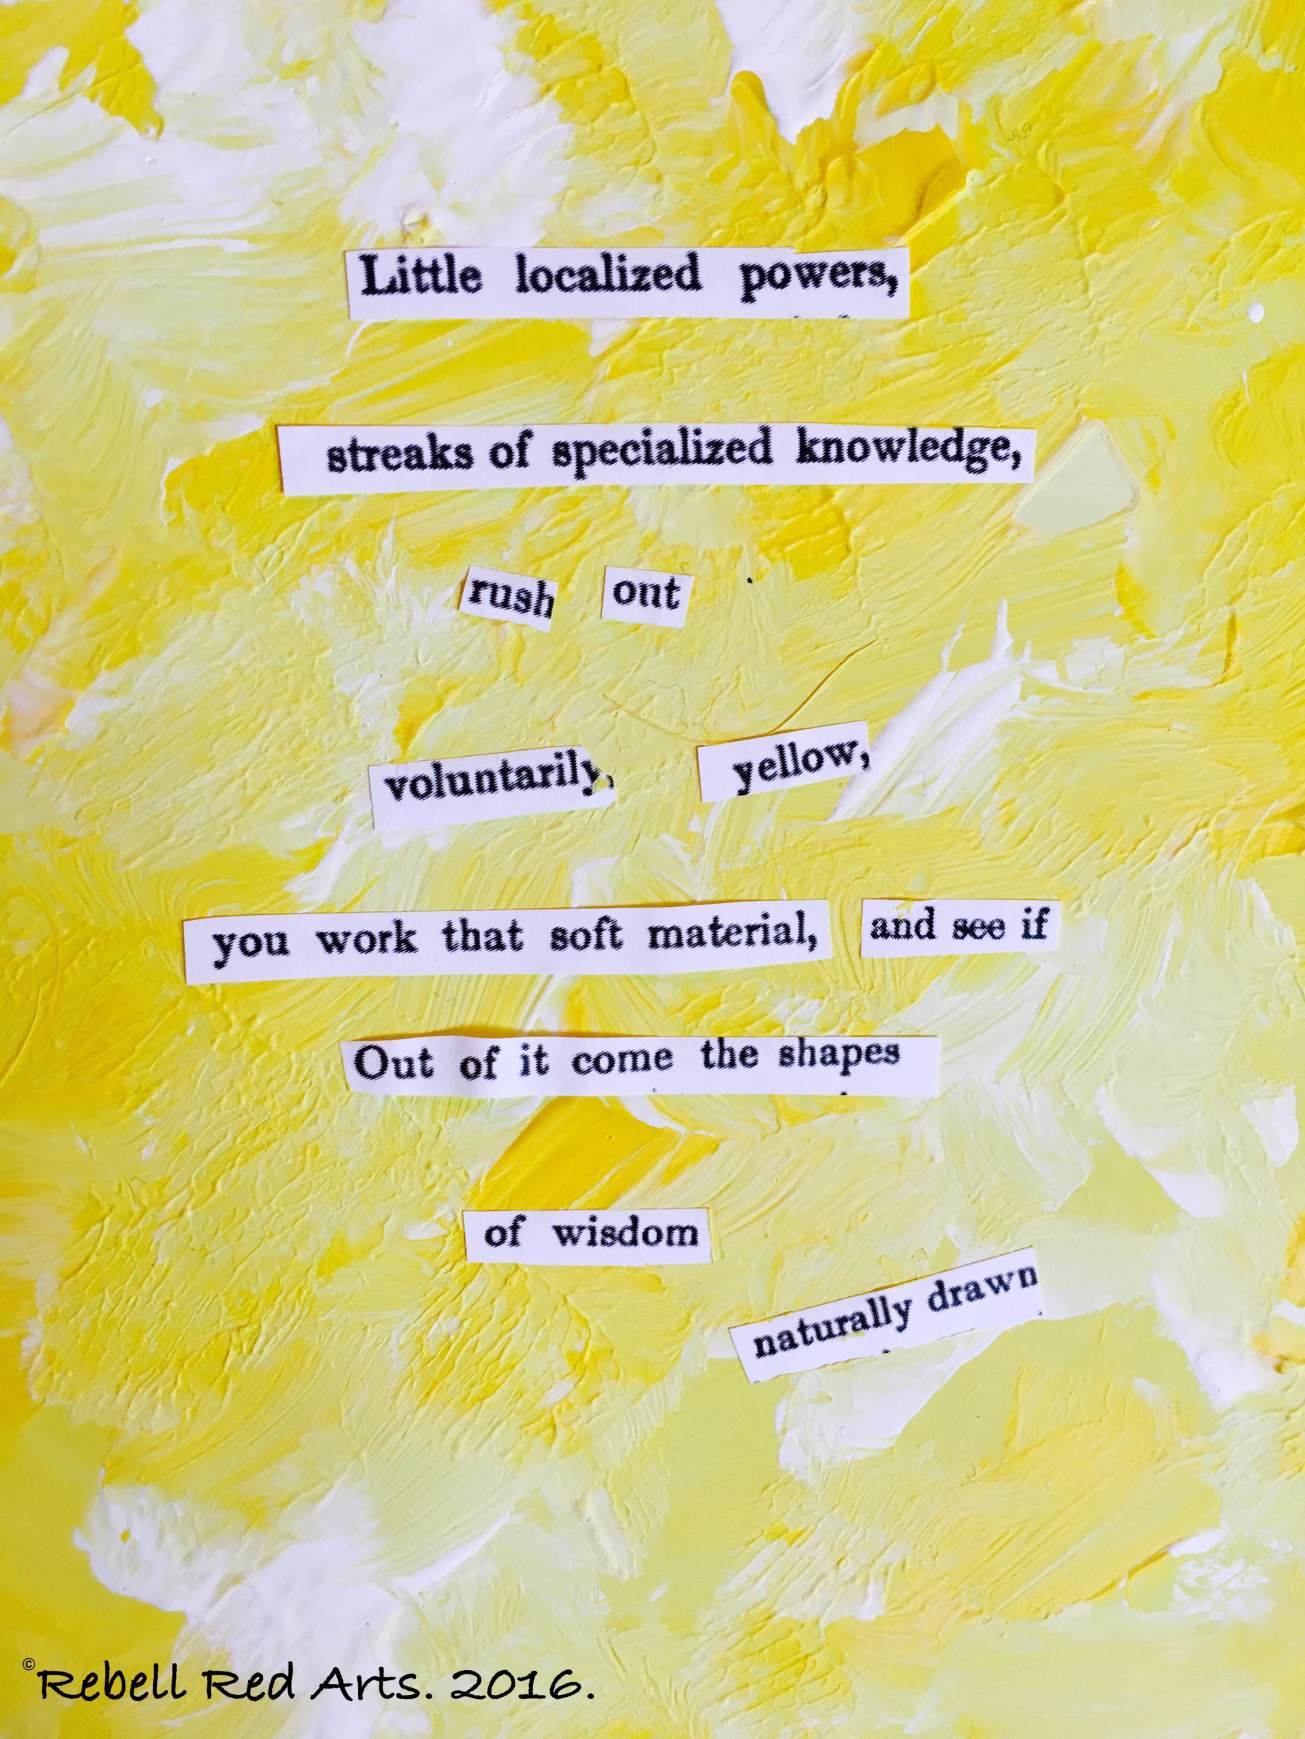 Little localized powers,
streaks of specialized knowledge,
rush out
voluntarily, yellow,
you work that soft material, and see if
Out of it come the shapes
of wisdom
naturally drawn
©Rebell Red Arts. 2016.